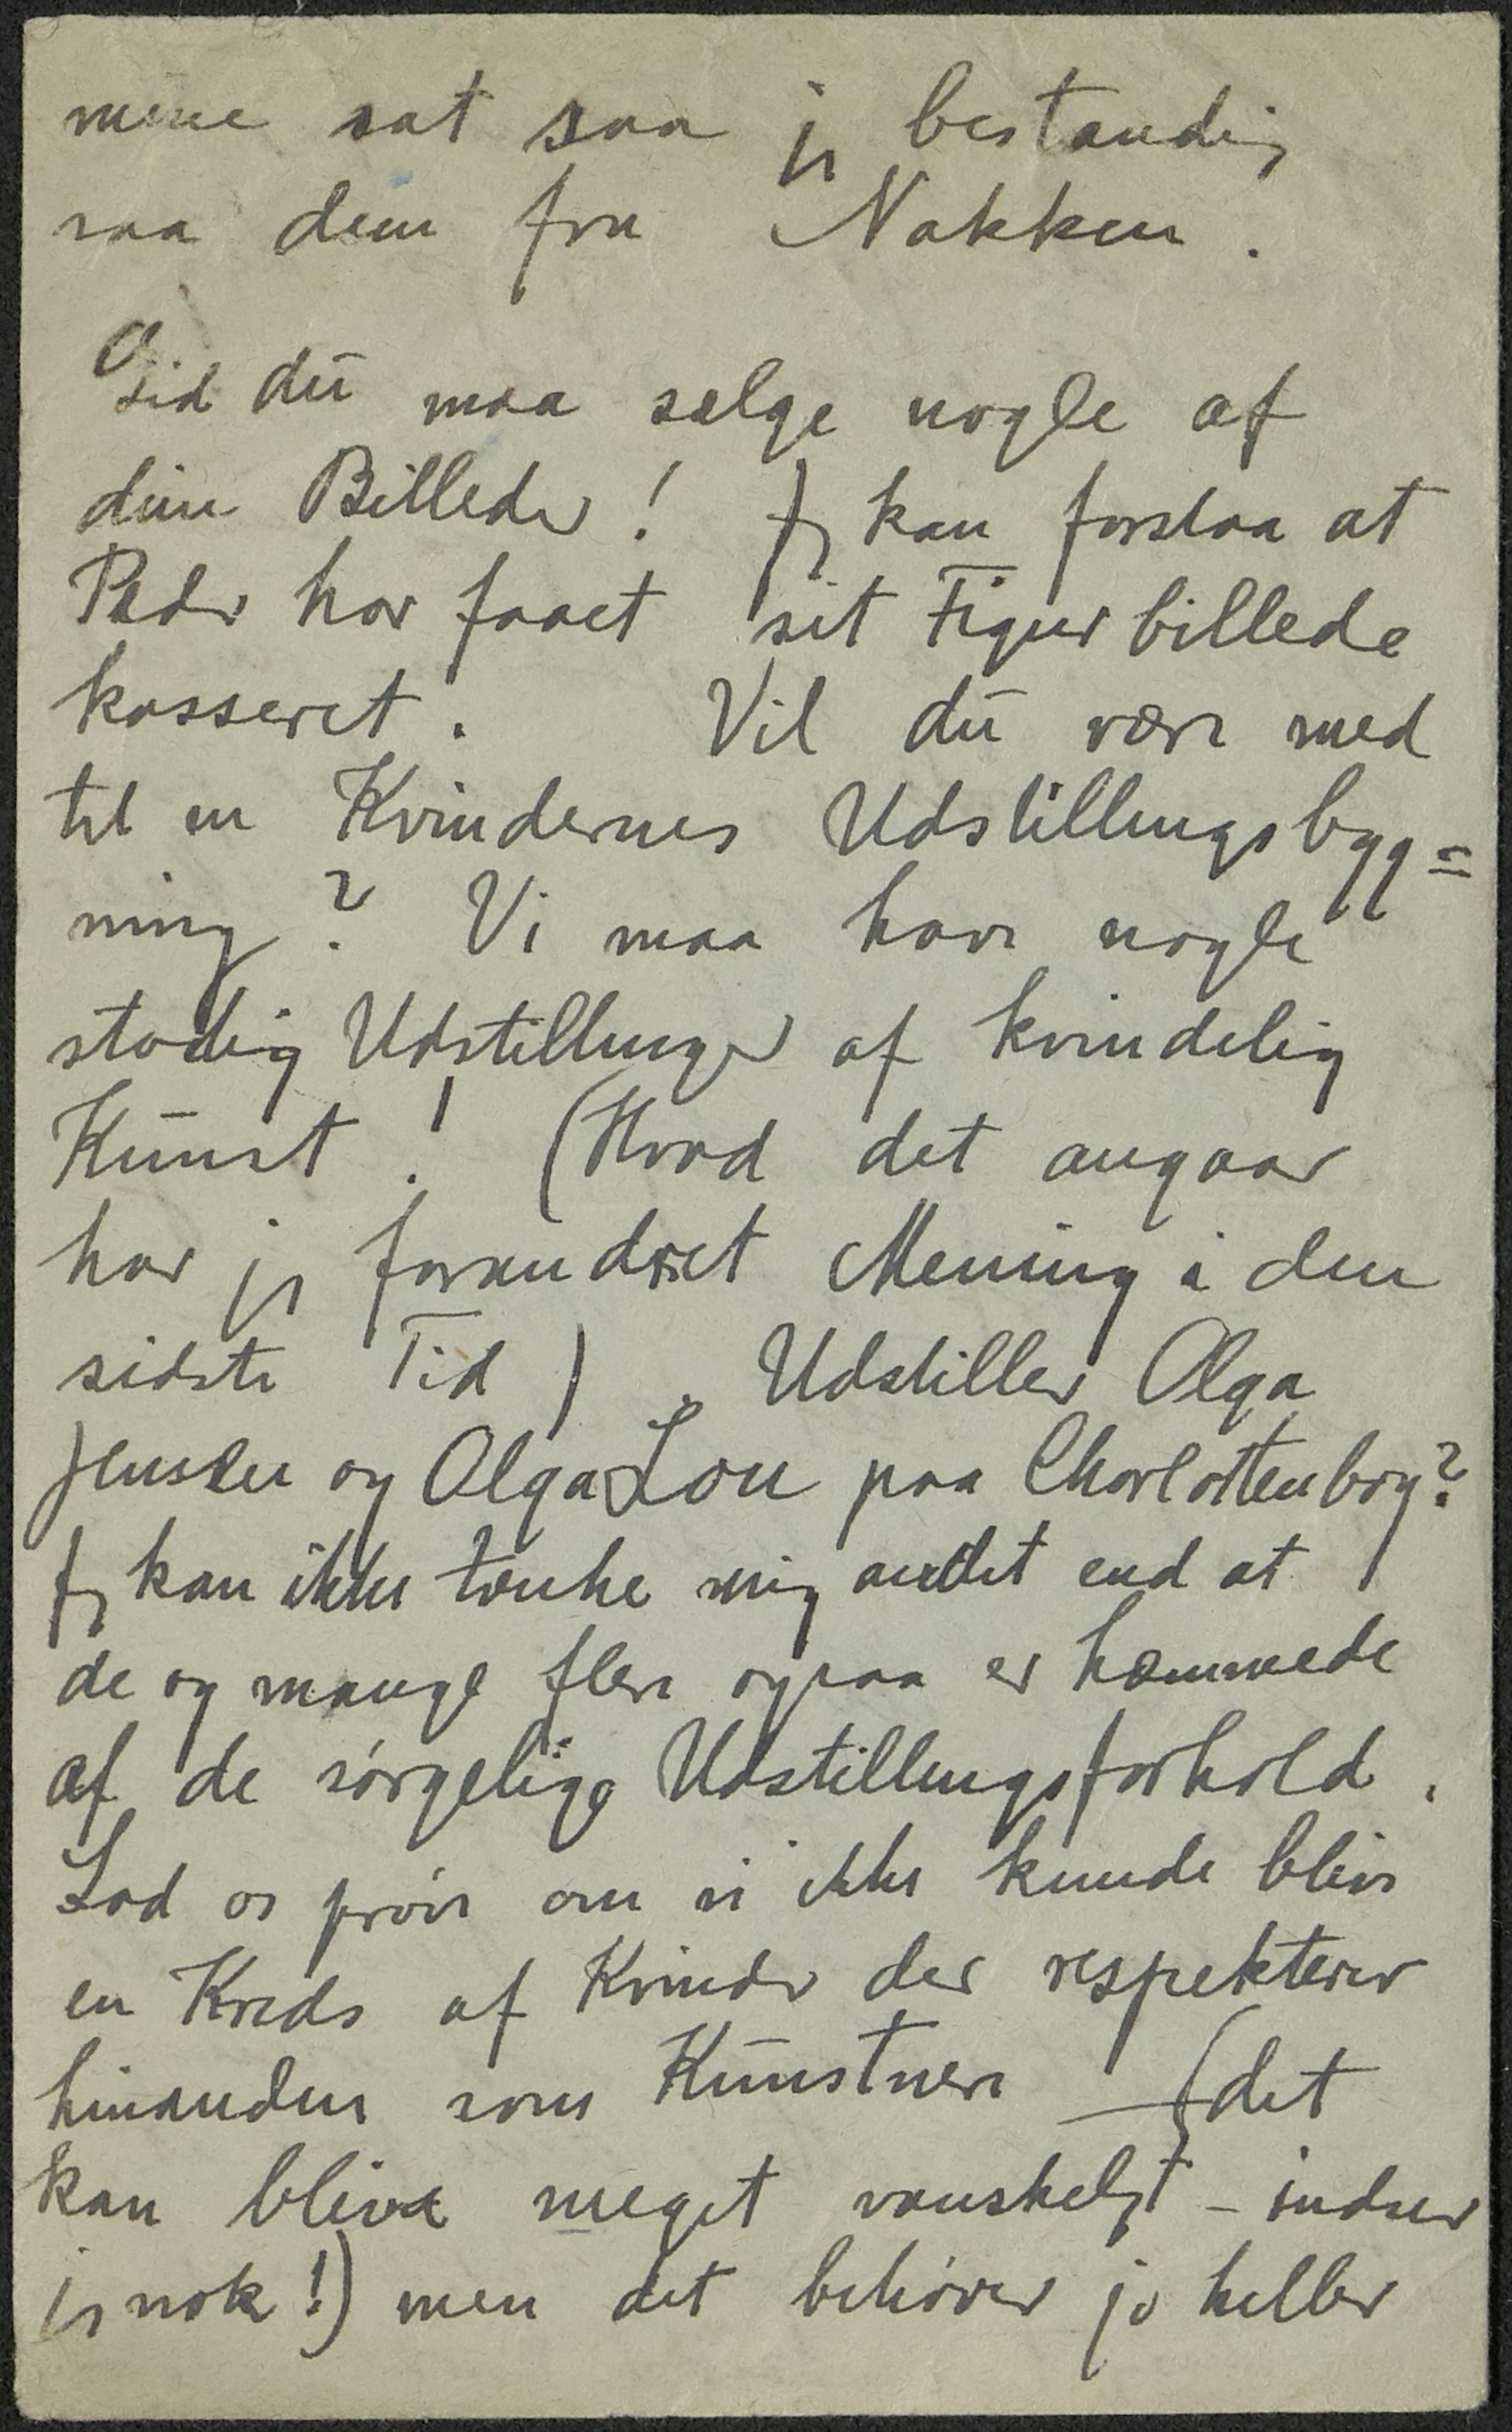 mine sat saa jeg bestandig
saa dem fra Nakken.
Gid du maa sælge nogle af
dine Billeder! Jeg kan forstaa at
Peder har faaet sit Figurbillede
kasseret. Vil du være med
til en Kvindernes Udstillingsbygg=
ning? Vi maa have nogle
stadig Udstillinger af kvindelig
Kunst! (Hvad det angaar
har jeg forandret Mening i den
sidste Tid). Udstiller Olga
Jensen og Olga Lau paa Charlottenborg?
Jeg kan ikke tænke mig andet end at
de og mange flere ogsaa er hæmmede
af de sørgelige Udstillingsforhold.
Lad os prøve om vi ikke kunde blive
en Kreds af Kvinder der respekterer
hinanden som Kunstnere – (det
kan blive meget vanskeligt – indser
jeg nok!) men det behøver jo heller